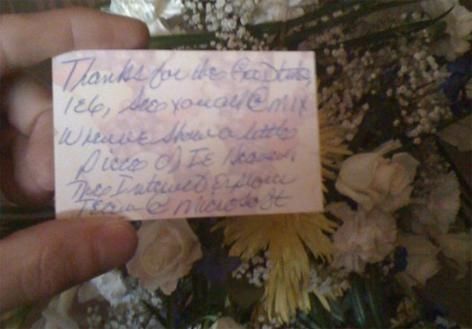 Thanks for the Good Times
IE6, See you all @ MIX
When we show a little
Piece of IE Heaven.
The Internet Explorer
Team @ Microsoft